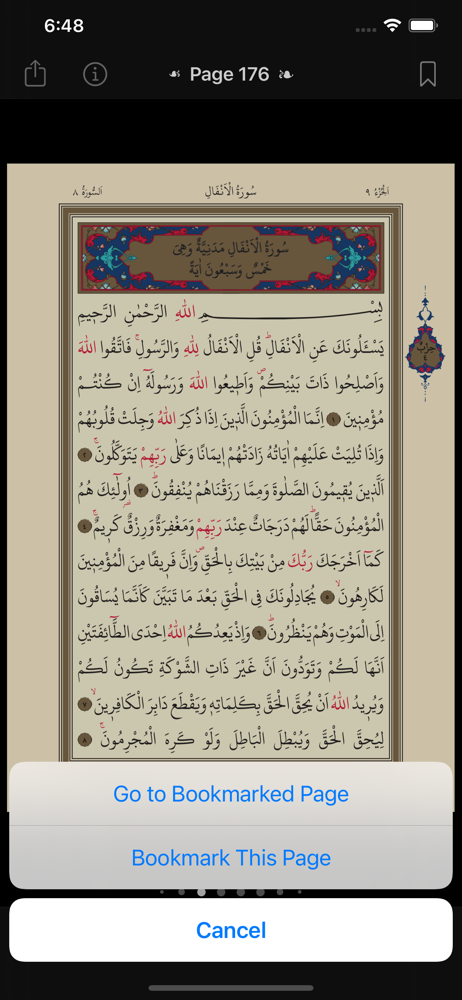 6:48
Page 176
الجزء ٩
سُورَةُ الْاَنْفَالِ
اَلسُّورَةُ ٨
سُورَةُ الْاَنْفَالِ مَدَنِيَّةٌ وَهِىَ
خَمْسٌ وَسَبْعُونَ اٰيَةً
بِسْــــمِ اللّٰهِ الرَّحْمٰنِ الرَّحٖيمِ
يَسْـَٔلُونَكَ عَنِ الْاَنْفَالِۜ قُلِ الْاَنْفَالُ لِلّٰهِ وَالرَّسُولِۚ فَاتَّقُوا اللّٰهَ
وَاَصْلِحُوا ذَاتَ بَيْنِكُمْۖ وَاَطٖيعُوا اللّٰهَ وَرَسُولَهُٓ اِنْ كُنْتُمْ
مُؤْمِنٖينَ ﴿١﴾ اِنَّمَا الْمُؤْمِنُونَ الَّذٖينَ اِذَا ذُكِرَ اللّٰهُ وَجِلَتْ قُلُوبُهُمْ
وَاِذَا تُلِيَتْ عَلَيْهِمْ اٰيَاتُهُ زَادَتْهُمْ اٖيمَانًا وَعَلٰى رَبِّهِمْ يَتَوَكَّلُونَۚ ﴿٢﴾
اَلَّذٖينَ يُقٖيمُونَ الصَّلٰوةَ وَمِمَّا رَزَقْنَاهُمْ يُنْفِقُونَۜ ﴿٣﴾ اُو۬لٰٓئِكَ هُمُ
الْمُؤْمِنُونَ حَقًّاۜ لَهُمْ دَرَجَاتٌ عِنْدَ رَبِّهِمْ وَمَغْفِرَةٌ وَرِزْقٌ كَرٖيمٌۚ ﴿٤﴾
كَمَٓا اَخْرَجَكَ رَبُّكَ مِنْ بَيْتِكَ بِالْحَقِّۖ وَاِنَّ فَرٖيقًا مِنَ الْمُؤْمِنٖينَ
لَكَارِهُونَۙ ﴿٥﴾ يُجَادِلُونَكَ فِى الْحَقِّ بَعْدَ مَا تَبَيَّنَ كَاَنَّمَا يُسَاقُونَ
اِلَى الْمَوْتِ وَهُمْ يَنْظُرُونَۜ ﴿٦﴾ وَاِذْ يَعِدُكُمُ اللّٰهُ اِحْدَى الطَّٓائِفَتَيْنِ
اَنَّهَا لَكُمْ وَتَوَدُّونَ اَنَّ غَيْرَ ذَاتِ الشَّوْكَةِ تَكُونُ لَكُمْ
وَيُرٖيدُ اللّٰهُ اَنْ يُحِقَّ الْحَقَّ بِكَلِمَاتِهٖ وَيَقْطَعَ دَابِرَ الْكَافِرٖينَۙ ﴿٧﴾
لِيُحِقَّ الْحَقَّ وَيُبْطِلَ الْبَاطِلَ وَلَوْ كَرِهَ الْمُجْرِمُونَۚ ﴿٨﴾
حزب
٤
Go to Bookmarked Page
Bookmark This Page
Cancel